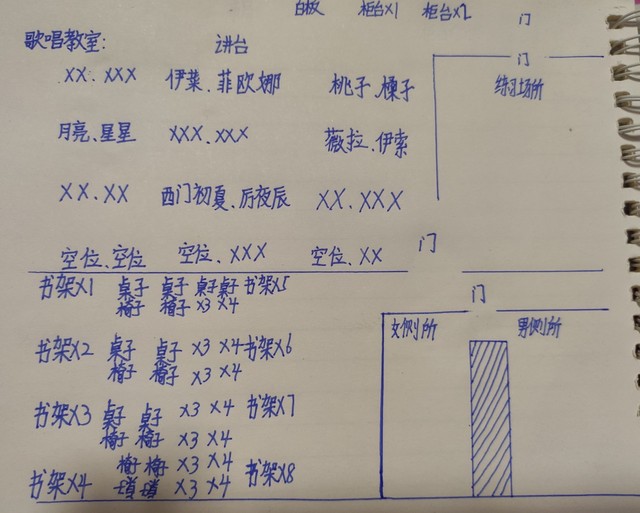 白板 柜台x1 柜台x2 门
歌唱教室: 讲台 门
XX、XXX 伊莱、菲欧娜 桃子、橡子 练习场所
月亮、星星 XXX、XXX 薇拉、伊索
XX、XX 西门初夏、后夜辰 XX、XXX
空位、空位 空位、XXX 空位、XX 门
书架x1 桌子 桌子 桌子桌子 书架x5 门
椅子 椅子 x3 x4
女侧所 男侧所
书架x2 桌子 桌子 x3 x4 书架x6
椅子 椅子 x3 x4
书架x3 桌子 桌子 x3 x4 书架x7
椅子 椅子 x3 x4
椅子 椅子 x3 x4
书架x4 x3 x4 书架x8